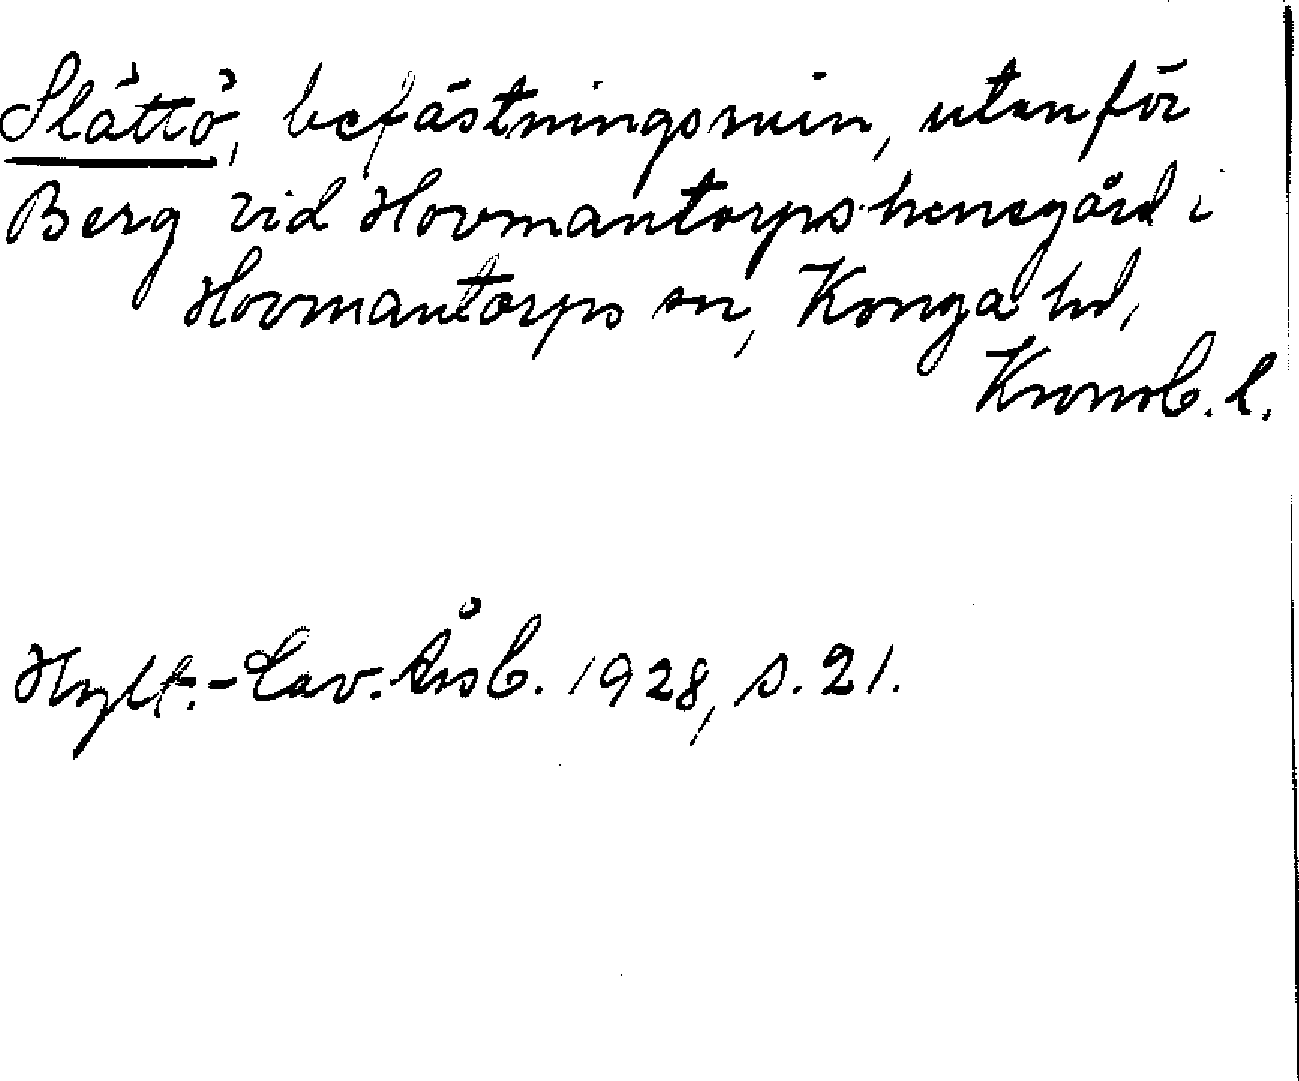 Slättö, befästningsruin, utanför
Berg vid Hovmantorps herregård i
Hovmantorps sn, Konga hd,
Kronob. l.
Hylt.-Cav. Årsb. 1928, s. 21.